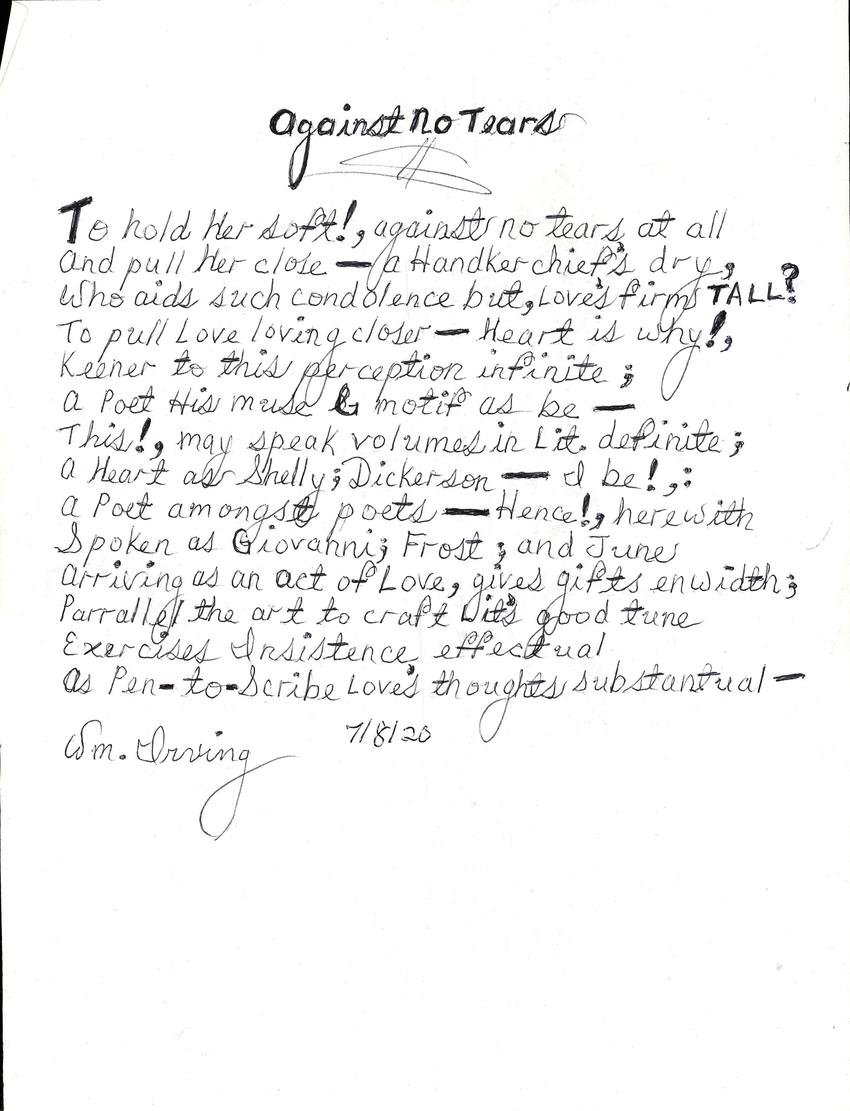 Against No Tears
To hold Her soft!, against no tears at all
And pull Her close — a Handkerchief's dry,
Who aids such condolence but, Love's firms TALL?
To pull Love loving closer — Heart is why!,
Keener to this perception infinite;
A Poet His muse & motif as be —
This!, may speak volumes in Lit. definite;
A Heart as Shelly; Dickerson — I be!,:
A Poet amongst poets — Hence!, herewith
Spoken as Giovanni; Frost; and June
Arriving as an act of Love, gives gifts enwidth;
Parrallel the art to craft it's good tune
Exercises Insistence effectual
As Pen-to-Scribe Love's thoughts substantual —
Wm. Irving 7/8/20